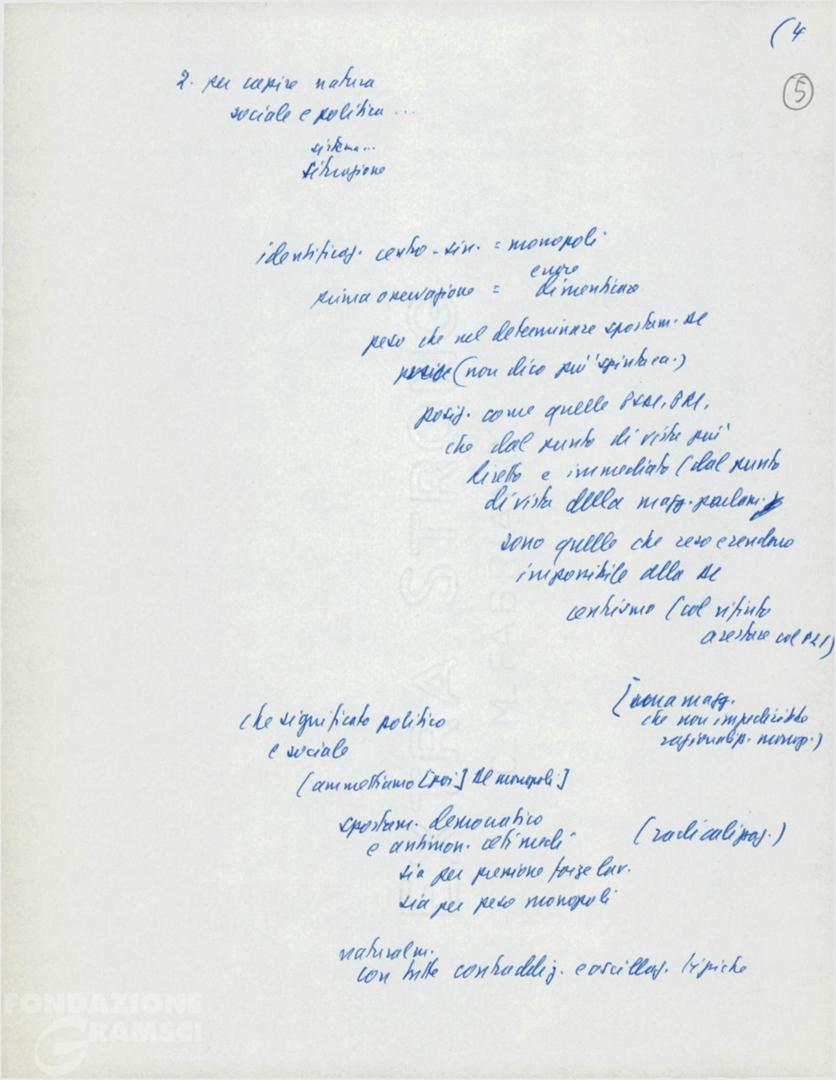 (4
5
2. per capire natura
sociale e politica ...
sistema...
situazione
identificaz. centro-sin. = monopoli
errore
prima osservazione = dimenticare
peso che nel determinare spostam. DC
(non dico più spinta ca.)
posiz. come quelle PSDI, PRI,
che dal punto di vista più
diretto e immediato (dal punto
di vista della magg. parlam.)
sono quelle che reso e rendono
impossibile alla DC
centrismo (col rifiuto
a restare col PLI)
[una magg.
che non impedirebbe
razionalizz. monop.)
che significato politico
e sociale
(ammettiamo [poi] DC monopoli]
spostam. democratico
e antimon. ceti medi (radicalizzaz.)
sia per pressione forze lav.
sia per peso monopoli
naturalm.
con tutte contraddiz. e oscillaz. tipiche
EXTRA STRONG
FABRIA
FONDAZIONE
GRAMSCI